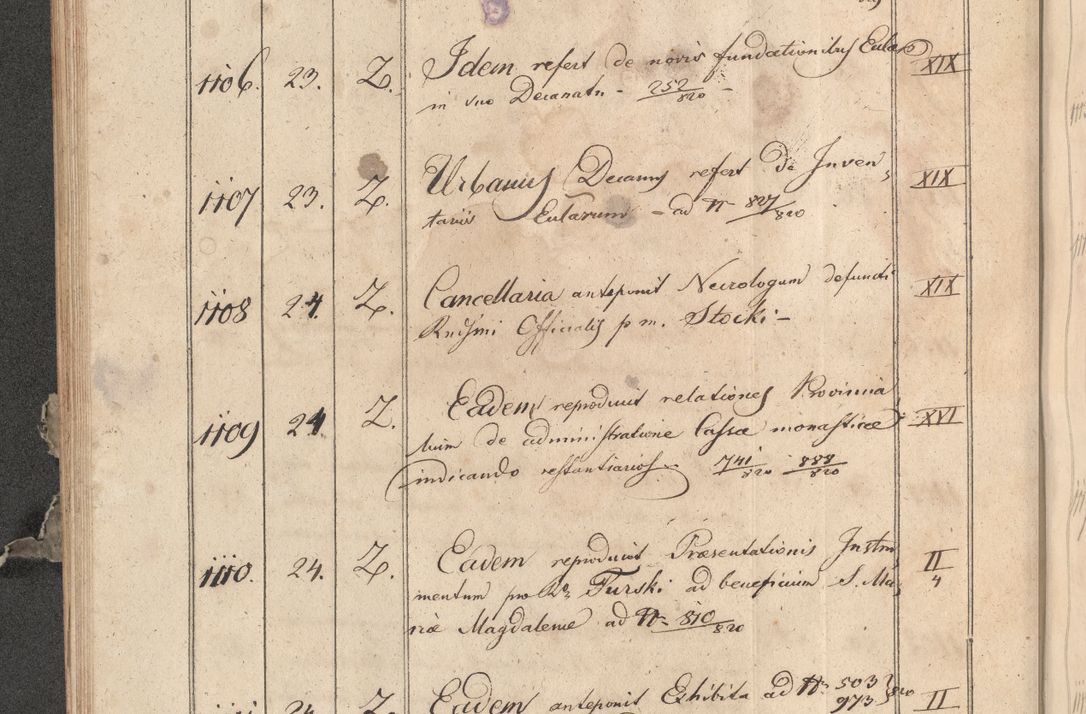 1106. 23. Z. Idem refert de novis fundationibus Eccla XIX
in suo Decanatu - 252/820 -
1107 23. Z. Urbanus Decanus refert de Inven, XIX
tariis Ecclarum - ad N 827/820
1108 24. Z. Cancellaria anteponit Necrologum defuncti XIX
Rndssmi Officialis p. m. Stocki -
1109 24 Z. Eadem reproducit relationes Provincia,
lium de administratione Cassæ monasticæ XVI
indicando restantiarios. 741/820 888/820
1110. 24. Z. Eadem reproducit Præsentationis Instru, II
mentum pro R. Turski ad beneficium S. Ma, 4
riæ Magdalenæ ad N. 810/820
24. Z. Eadem anteponit Exhibita ad N. 503 820 II
973